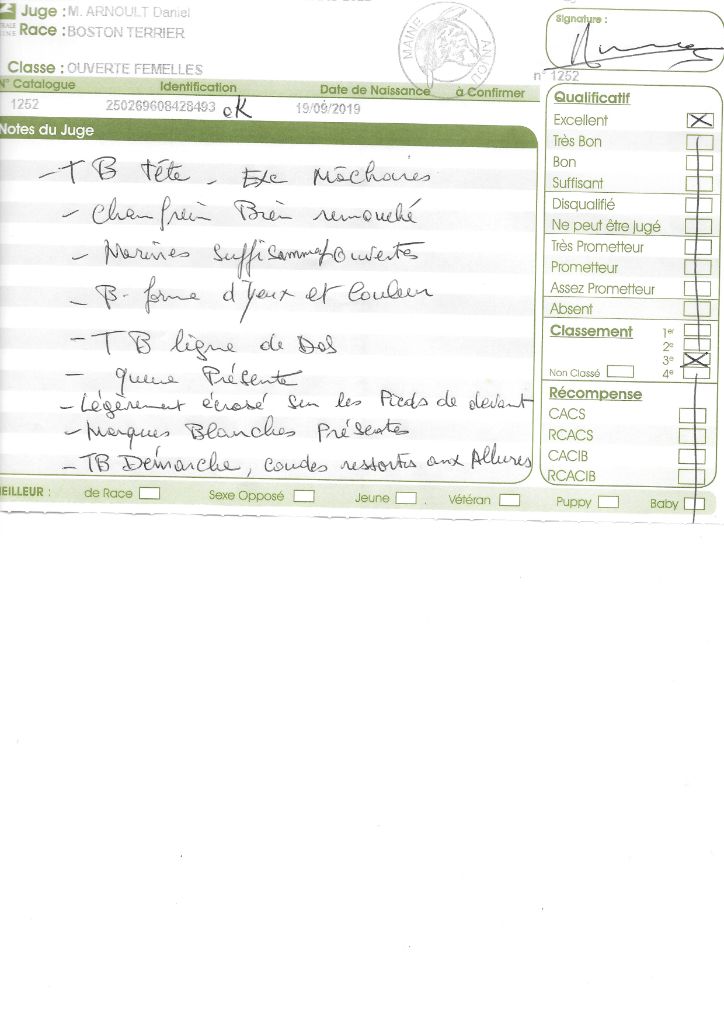 Juge : M. ARNOULT Daniel
Race : BOSTON TERRIER
Classe : OUVERTE FEMELLES
MAINE ANJOU
Signature :
n° 1252
N° Catalogue Identification Date de Naissance à Confirmer
1252 250269608428493 OK 19/09/2019
Notes du Juge
- TB tête - Exc Mâchoires
- Chanfrein Bien remouché
- Narines suffisammt ouvertes
- B. forme d'yeux et couleur
- TB ligne de Dos
- queue Présente
- Légèrement écrasé sur les Pieds de devant
- Marques Blanches Présentes
- TB Démarche, coudes ressortis aux Allures
Qualificatif
Excellent
Très Bon
Bon
Suffisant
Disqualifié
Ne peut être jugé
Très Prometteur
Prometteur
Assez Prometteur
Absent
Classement 1er
2e
3e
Non Classé 4e
Récompense
CACS
RCACS
CACIB
RCACIB
MEILLEUR : de Race Sexe Opposé Jeune Vétéran Puppy Baby